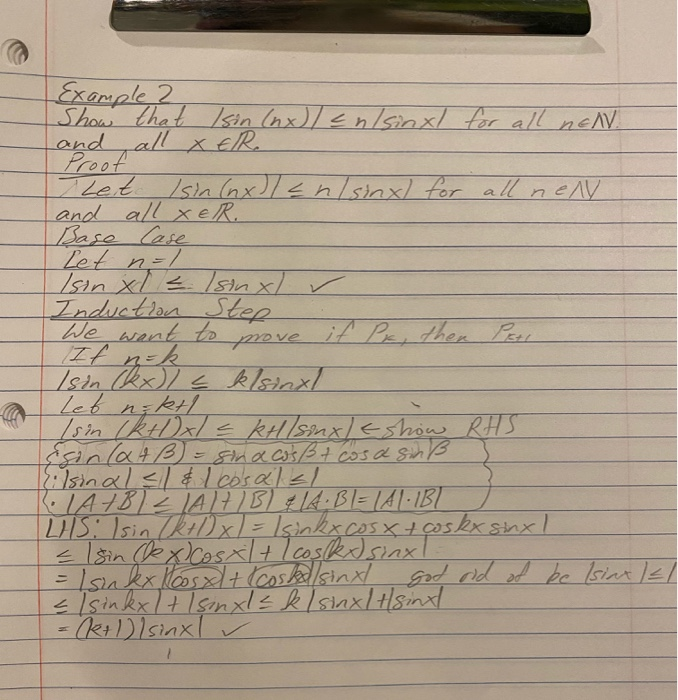 Example 2
Show that |sin(nx)| ≤ n|sinx| for all n∈ℕ
and all x∈ℝ.
Proof
Let |sin(nx)| ≤ n|sinx| for all n∈ℕ
and all x∈ℝ.
Base Case
Let n=1
|sin x| ≤ |sin x| ✓
Induction Step
We want to prove if Pₖ, then Pₖ₊₁
If n=k
|sin(kx)| ≤ k|sinx|
Let n=k+1
|sin(k+1)x| ≤ k+1|sinx| ← show RHS
sin(α+β) = sinαcosβ + cosα sinβ
|sinα| ≤ 1 & |cosα| ≤ 1
· |A+B| ≤ |A|+|B| & |A·B| = |A|·|B|
LHS: |sin(k+1)x| = |sinkxcosx + coskx sinx|
≤ |sin(kx)cosx| + |cos(kx)sinx|
= |sinkx||cosx| + |coskx||sinx| got rid of bc |sinx| ≤ 1
≤ |sinkx| + |sinx| ≤ k|sinx| + |sinx|
= (k+1)|sinx| ✓